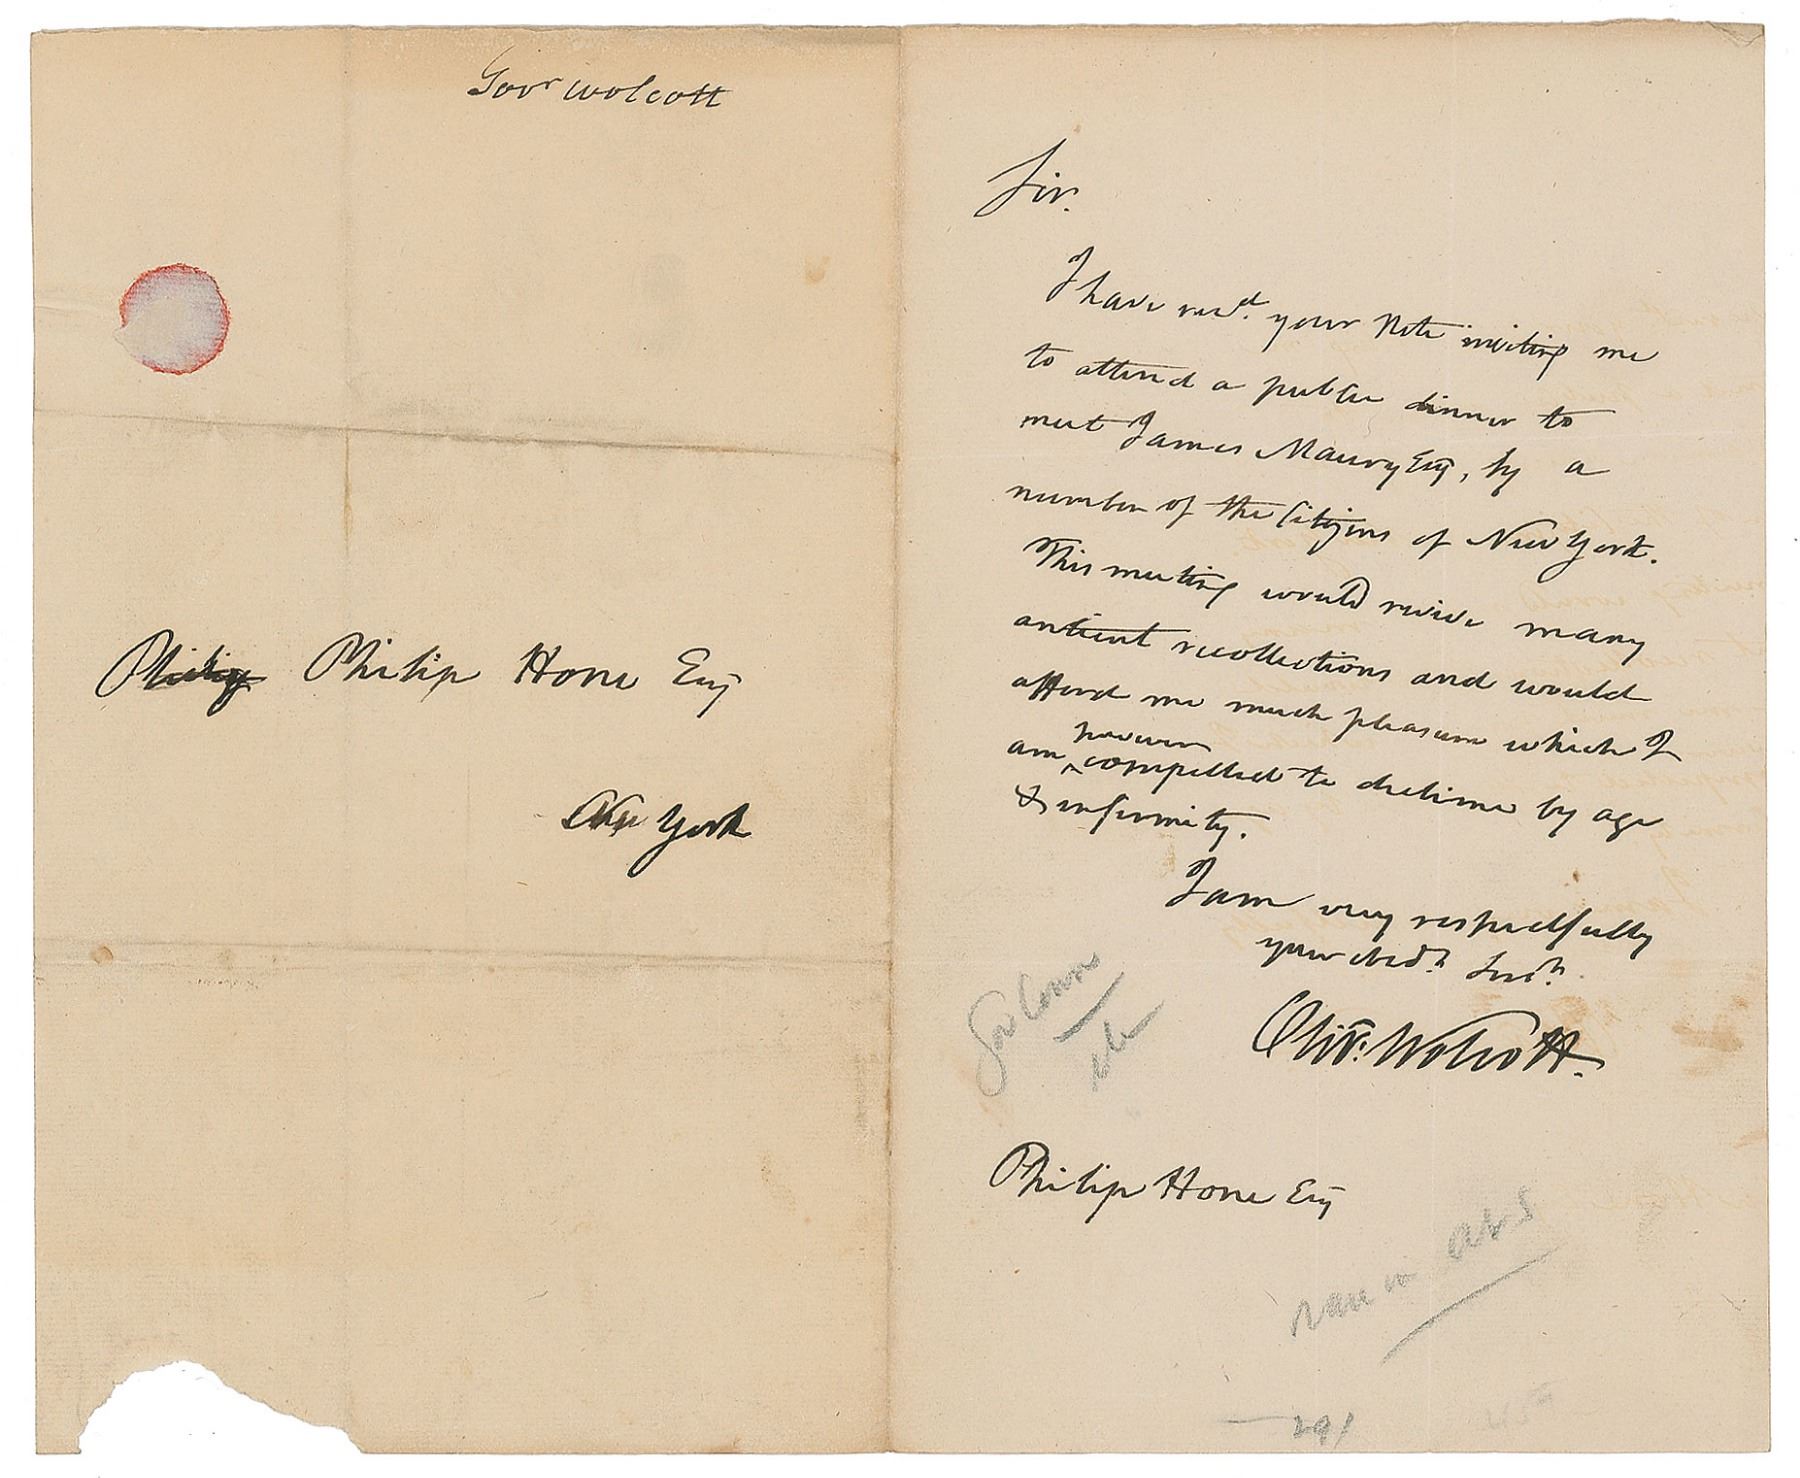 Govr Wolcott
Philip Philip Hone Esq
New York
Sir.
I have recd. your Note inviting me
to attend a public dinner to
meet James Maury Esq, by a
number of the Citizens of New York.
This meeting would revive many
antient recollections and would
afford me much pleasure which I
however
am compelled to decline by age
& infirmity.
I am very respectfully
your obedt Servt.
Oliv: Wolcott.
Gov Conn
Philip Hone Esq
rare in ALS
291